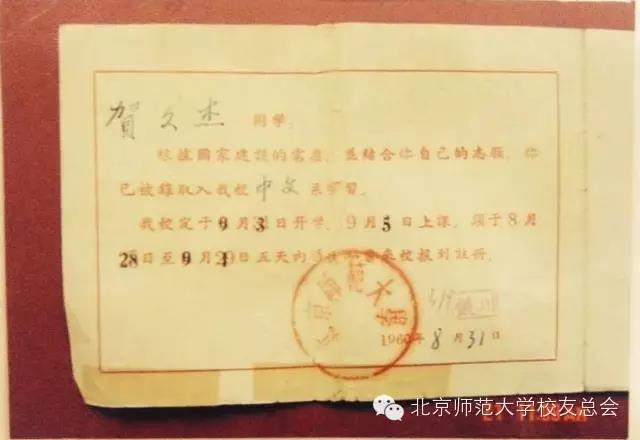 賀文杰 同学：
根據國家建設的需要，並結合你自己的志願，你
已被錄取入我校中文系学習。
我校定于9月3日开学，9月5日上課，須于8月
28日至9月1日五天內 來校报到註冊。
北京師范大学
银川
1960年8月31日
北京师范大学校友总会